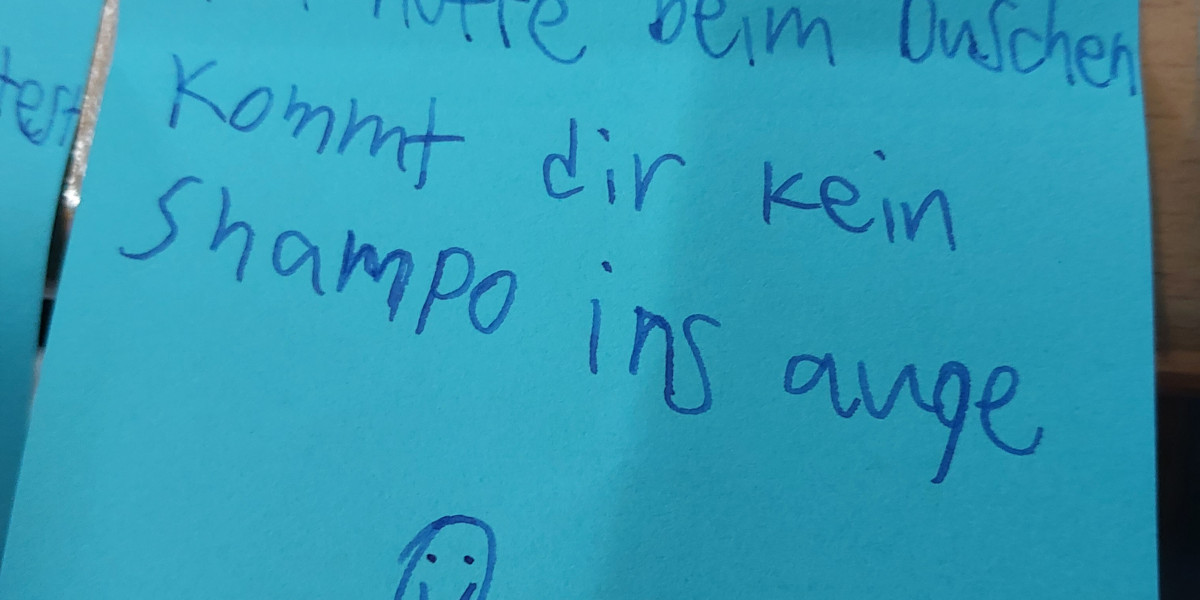 hoffe beim Duschen
Kommt dir kein
Shampo ins auge